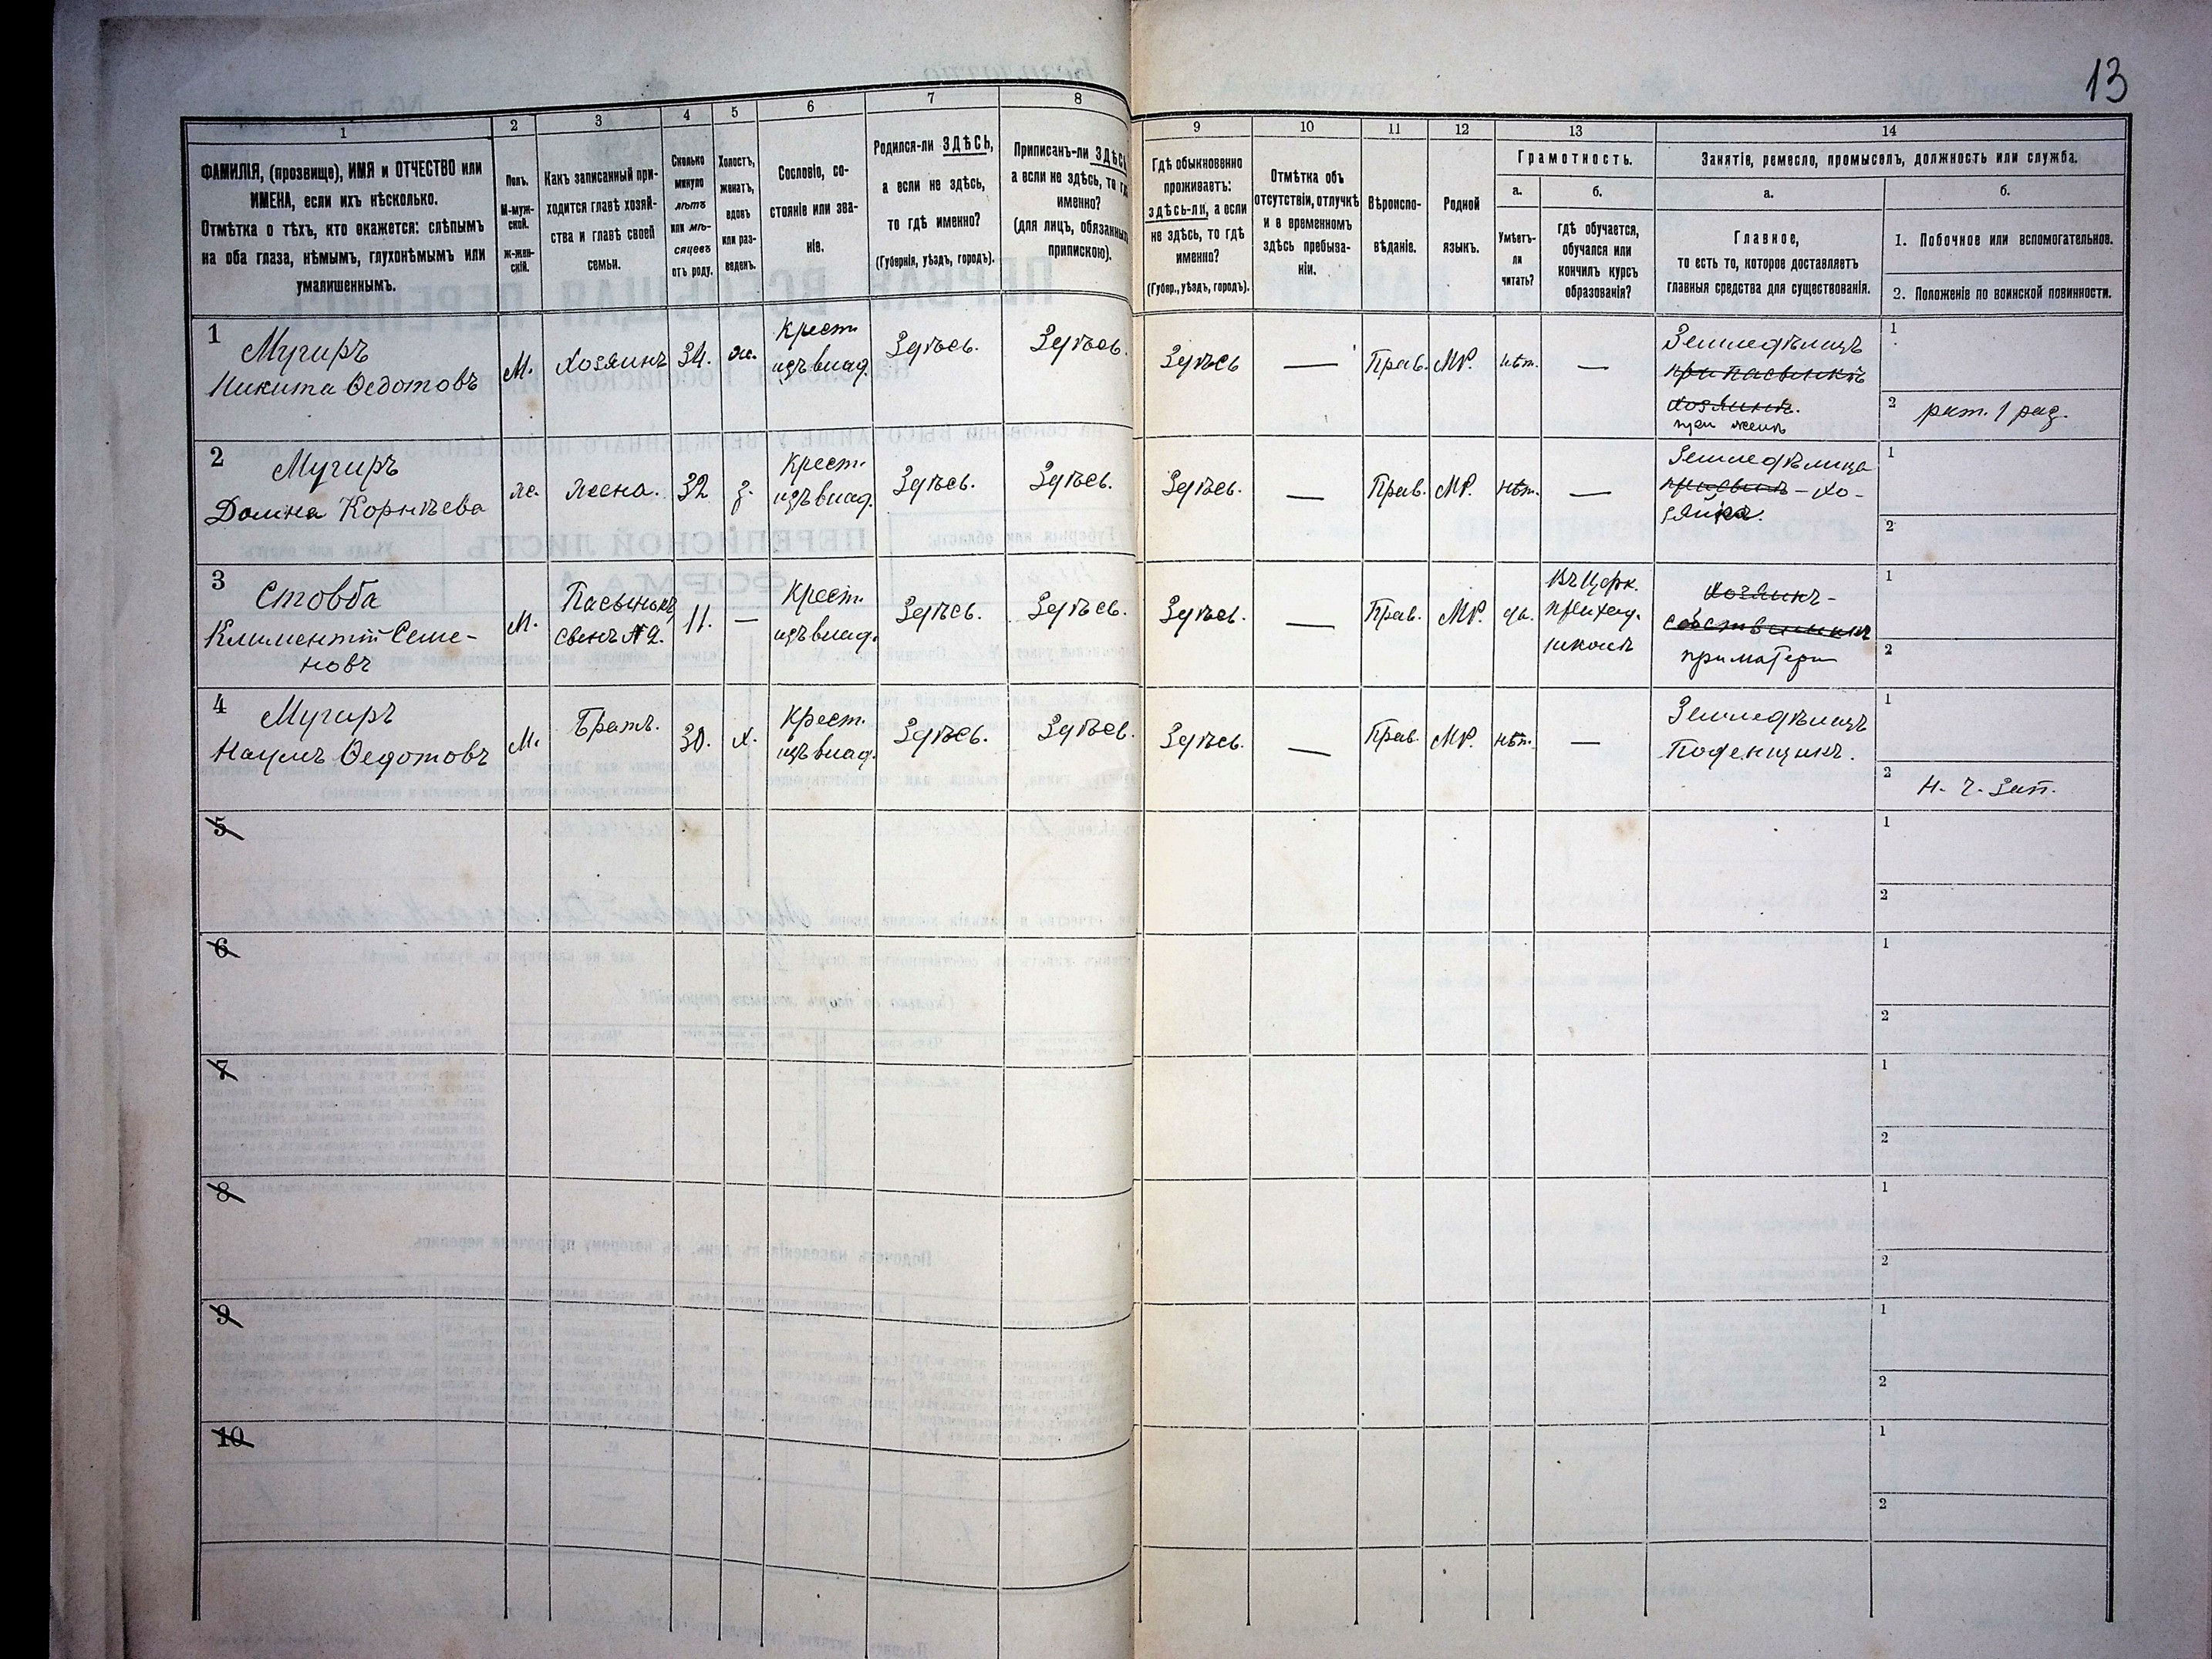 13
1
2
3
4
5
6
7
8
9
10
11
12
13
14
ФАМИЛІЯ, (прозвище), ИМЯ и ОТЧЕСТВО или
ИМЕНА, если ихъ нѣсколько.
Отмѣтка о тѣхъ, кто окажется: слѣпымъ
на оба глаза, нѣмымъ, глухонѣмымъ или
умалишеннымъ.
Полъ.
М-муж-
ской.
Ж-жен-
скій.
Какъ записанный при-
ходится главѣ хозяй-
ства и главѣ своей
семьи.
Сколько
минуло
лѣтъ
или мѣ-
сяцевъ
отъ роду.
Холостъ,
женатъ,
вдовъ
или раз-
веденъ.
Сословіе, со-
стояніе или зва-
ніе.
Родился-ли ЗДѢСЬ,
а если не здѣсь,
то гдѣ именно?
(Губернія, уѣздъ, городъ).
Приписанъ-ли ЗДѢСЬ,
а если не здѣсь, то гдѣ
именно?
(для лицъ, обязанныхъ
припискою).
Гдѣ обыкновенно
проживаетъ:
здѣсь-ли, а если
не здѣсь, то гдѣ
именно?
(Губер., уѣздъ, городъ).
Отмѣтка объ
отсутствіи, отлучкѣ
и о временномъ
здѣсь пребыва-
ніи.
Вѣроиспо-
вѣданіе.
Родной
языкъ.
Грамотность.
а.
Умѣетъ-
ли
читать?
б.
гдѣ обучается,
обучался или
кончилъ курсъ
образованія?
Занятіе, ремесло, промыселъ, должность или служба.
а.
Главное,
то есть то, которое доставляетъ
главныя средства для существованія.
б.
1. Побочное или вспомогательное.
2. Положеніе по воинской повинности.
1
Мугиръ
Никита Ѳедотовъ
М.
Хозяинъ
34.
ж.
Крест.
изъ влад.
Здѣсь.
Здѣсь.
Здѣсь
—
Прав.
МР.
нѣт.
—
Земледѣлецъ
хозяинъ.
при женѣ
1
2 рат. 1 раз.
2
Мугиръ
Домна Корнѣева
ж.
жена.
32
з.
Крест.
изъ влад.
Здѣсь.
Здѣсь.
Здѣсь.
—
Прав.
МР.
нѣт.
—
Земледѣлица
— хо-
зяйка.
1
2
3
Стовба
Климентій Семе-
новъ
М.
Пасынокъ
сынъ №2.
11.
—
Крест.
изъ влад.
Здѣсь.
Здѣсь.
Здѣсь.
—
Прав.
МР.
да.
Въ Церк.
приход.
школѣ
хозяинъ -
собственникъ
при матери
1
2
4
Мугиръ
Наумъ Ѳедотовъ
М.
Братъ.
30.
х.
Крест.
изъ влад.
Здѣсь.
Здѣсь.
Здѣсь.
—
Прав.
МР.
нѣт.
—
Земледѣлецъ
Поденщикъ.
1
2 н. ч. зап.
5
1
2
6
1
2
7
1
2
8
1
2
9
1
2
10
1
2